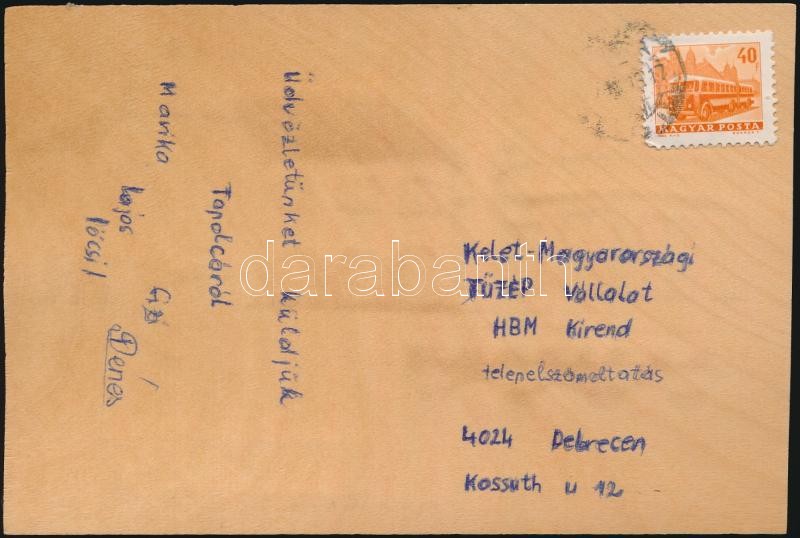 Üdvözletünket küldjük
Tapolcáról
Marika
Lajos
Gizi
Pöcsi L
Dénes
40f
MAGYAR POSTA
Kelet-Magyarországi
TÜZÉP Vállalat
HBM Kirend
telepelszámoltatás
4024 Debrecen
Kossuth u 12
darabanth